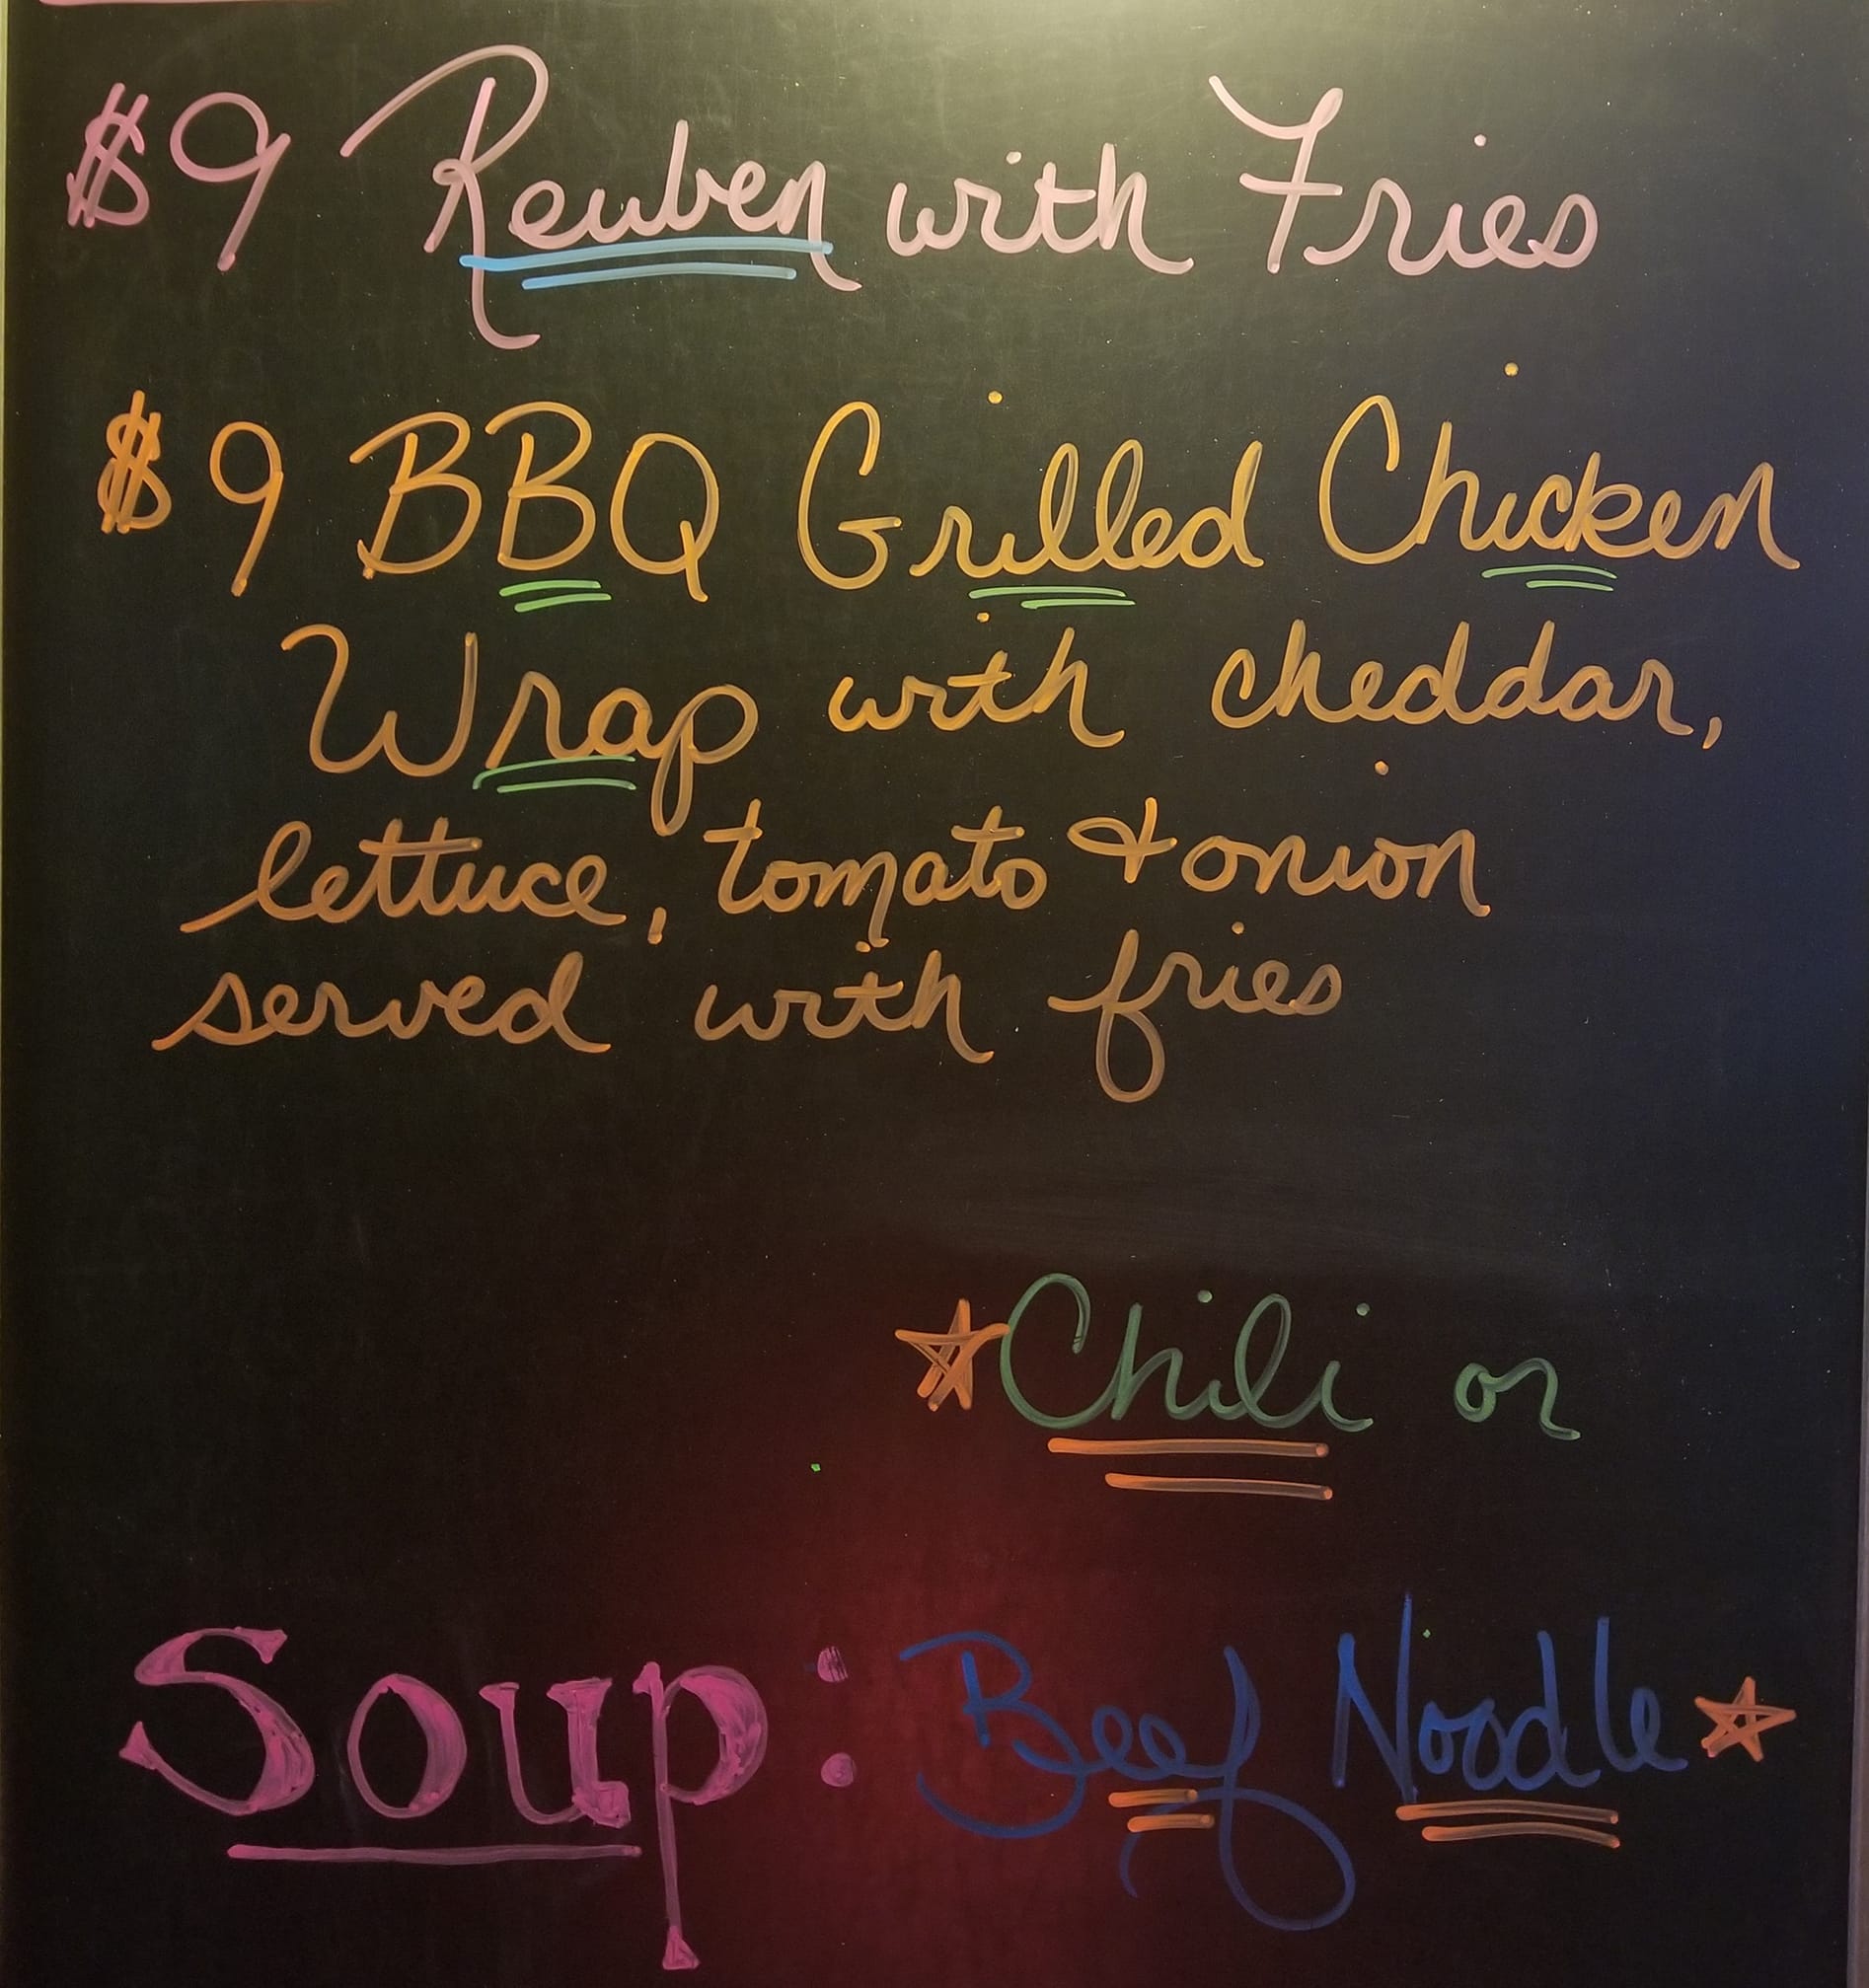 $9 Reuben with Fries
$9 BBQ Grilled Chicken
Wrap with cheddar,
lettuce, tomato & onion
served with fries
Chili or
Soup: Beef Noodle